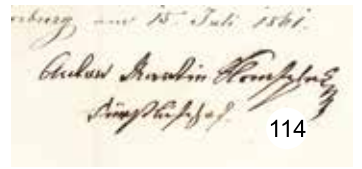 am 15. Juli 1861.
Anton Martin Slomschek
Fürstbischof.
114